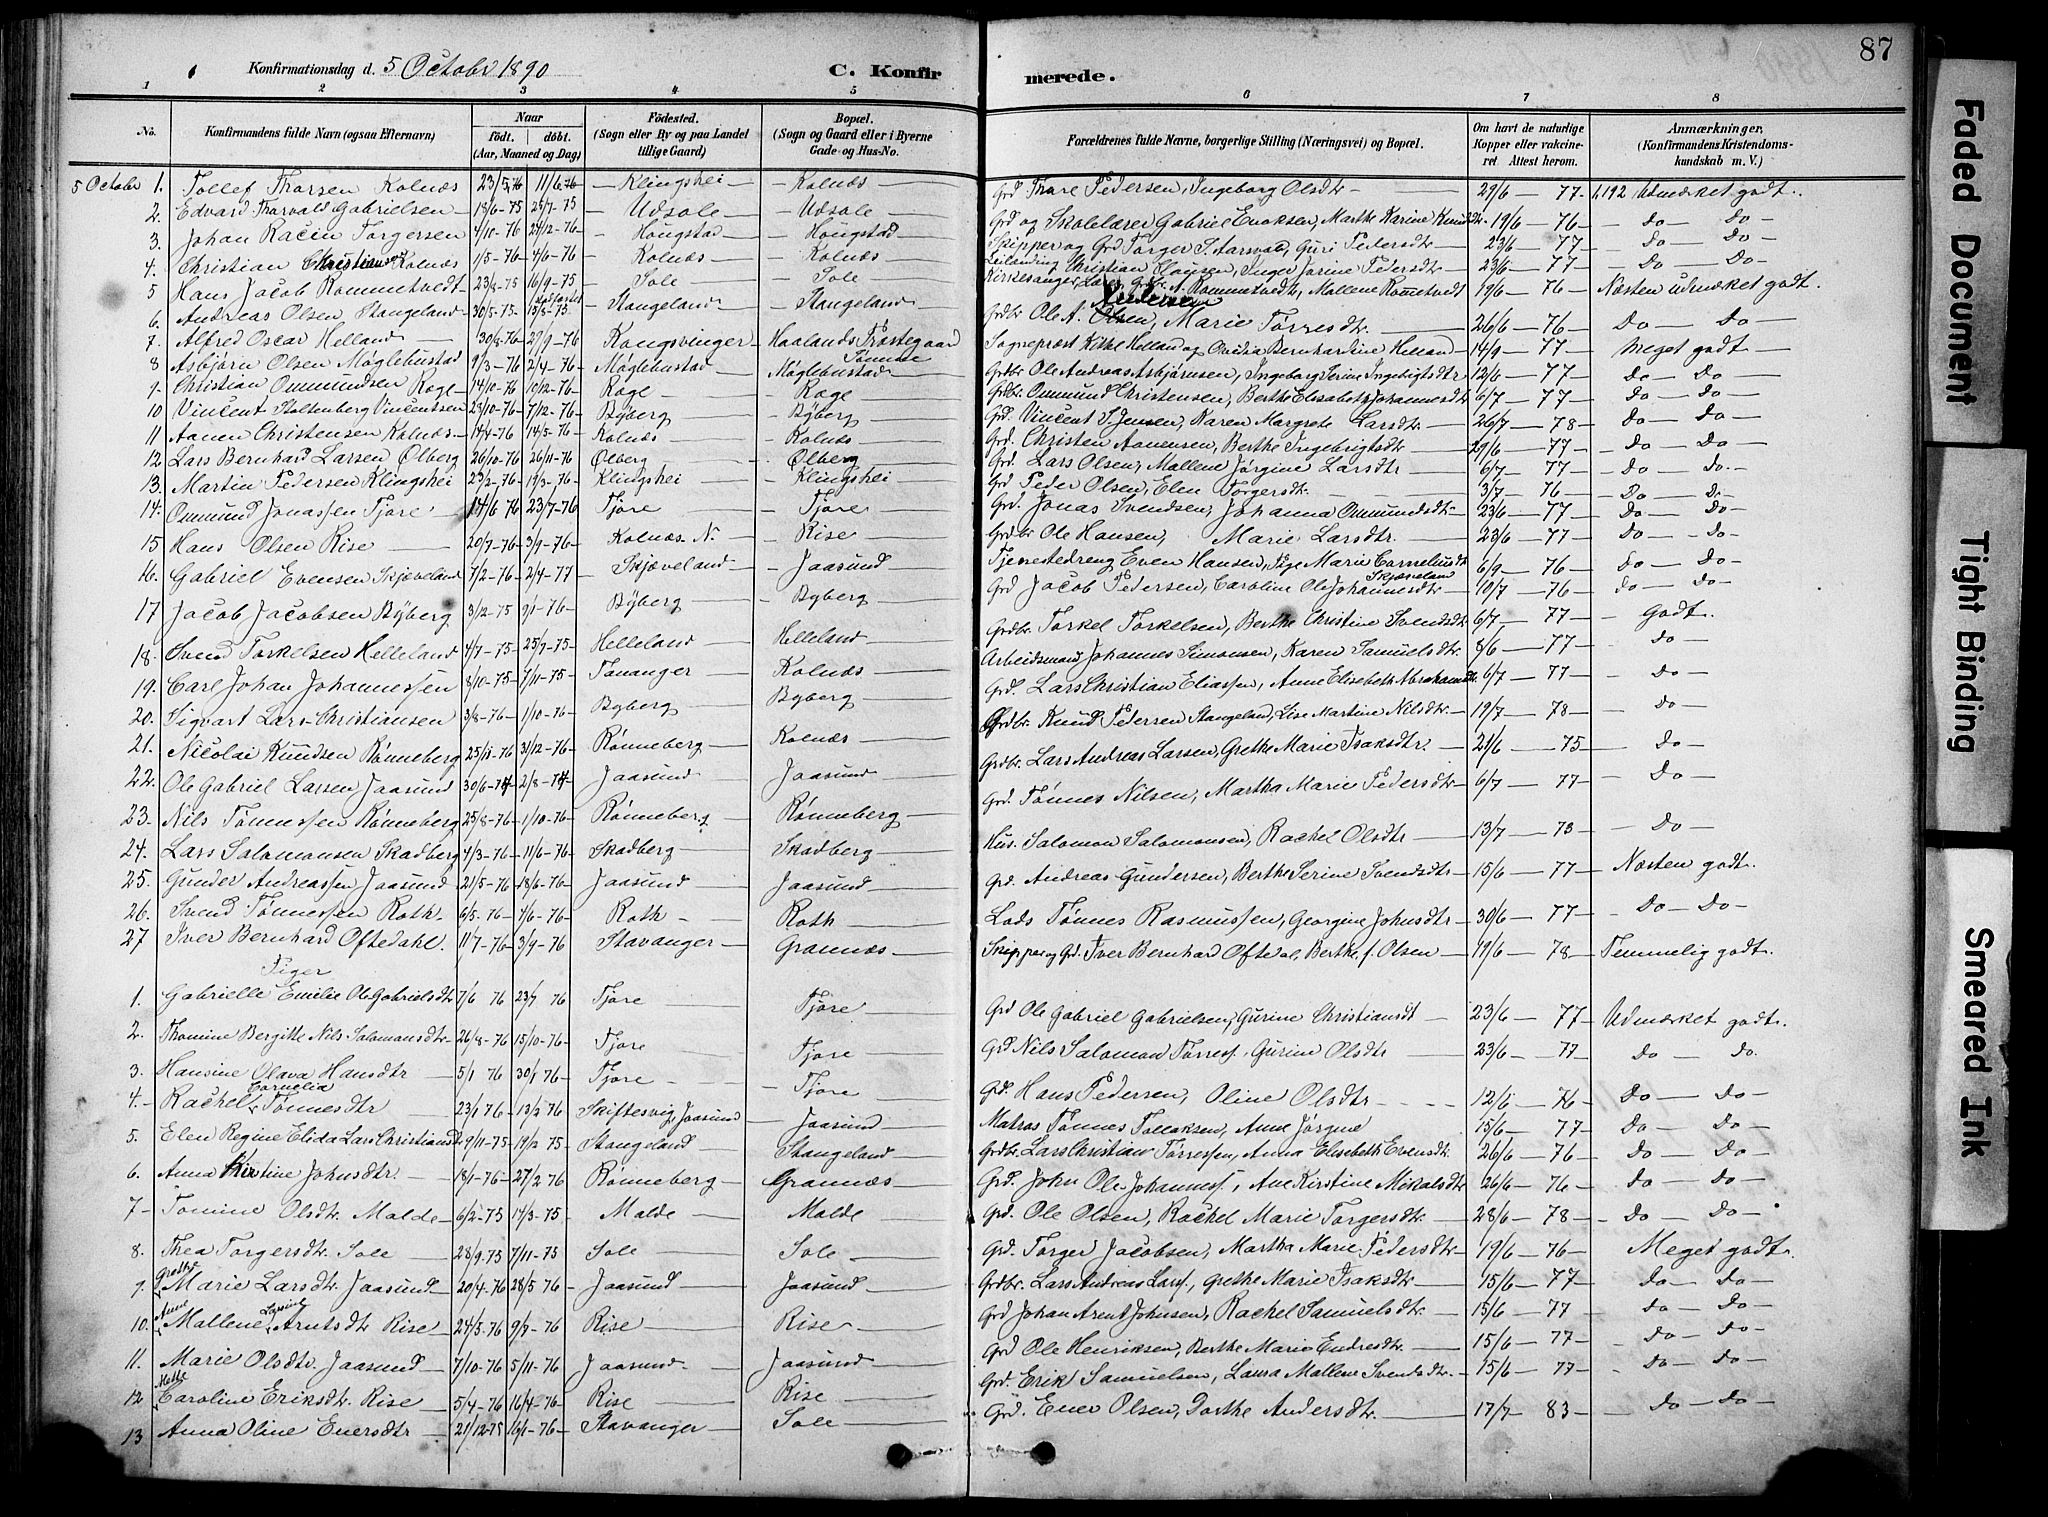 87
Konfirmationsdag d. 5 October 1890 C. Konfirmerede.
1 2 3 4 5 6 7 8
No. Konfirmandens fulde Navn (ogsaa Efternavn) Naar født. døbt. (Aar, Maaned og Dag) Fødested. (Sogn eller By og paa Landet tillige Gaard) Bopæl. (Sogn og Gaard eller i Byerne Gade- og Hus-No. Forældrenes fulde Navne, borgerlige Stilling (Næringsvei) og Bopæl. Om havt de naturlige Kopper eller vaccineret. Attest herom. Anmærkninger, (Konfirmandens Kristendomskundskab m. V.)
5 Octobr 1. Tollef Thorsen Kolnæs 23/5 76 11/6 76 Klingshei Kolnæs Grd Thore Pedersen, Ingeborg Olsdtr 29/6 77 Udmærket godt.
2. Edvard Thorvald Gabrielsen 18/6-75 25/7-75 Udsole Udsole Grd og Skolelærer Gabriel Enoksen, Marthe Karine Knudsdtr 19/6 76 Do Do
3. Johan Racin Torgersen 4/10-76 29/12-76 Hougstad Hougstad Skipper og Grd Torger Guri Pedersdtr 23/6 77 Do Do
4. Christian Christiansen Kolnæs 1/5-76 4/6-76 Kolnæs Kolnæs Christian Hansen, Inger Jorine Pedersdtr 23/6 77 Do Do
5 Hans Jacob Rommetvedt 23/8-75 16/9-75 Sole Sole Kirkesanger, Rommetvedt, Mallene Rommetvedt 19/6 76 Næsten udmærket godt
6. Andreas Olsen Stangeland 30/5-75 15/8-75 Stangeland Stangeland Grdbr Ole A. Andersen, Marie Torresdtr. 26/6 76 Do Do
7. Alfred Oscar Helland 30/8-76 27/9-76 Kongsvinger Haalands Præstegaard Sognepræst Helland og Ovidia Bernhardine Helland 14/9 77 Meget godt
8 Asbjørn Olsen Møglebustad 9/3-76 2/4-76 Møglebustad Møglebustad Grdbr Ole Andreas Asbjørnsen, Ingeborg Serine Ingebrigtsdtr 12/6 77 Do Do
9. Christian Ommundsen Roge 14/10-76 10/12-76 Roge Roge Grdbr. Ommund Christensen, Berthe Elisabeth Johannesdtr 6/7 77 Do Do
10 Vincent Stoltenberg Vincentsen 23/10-76 7/12-76 Byberg Byberg Grd. Vincent S. Jensen, Karen Margrete Larsdtr 26/7 78 Do Do
11 Aanen Christensen Kolnæs 14/4-76 14/5-76 Kolnæs Kolnæs Grd. Christen Aanensen, Berthe Ingebrigtsdtr 29/6 77 Do Do
12 Lars Bernhard Larsen Ølberg 26/10-76 26/11-76 Ølberg Ølberg Grd. Lars Olsen, Mallene Jørgine Larsdtr 6/7 77 Do Do
13. Martin Pedersen Klingshei 23/2-76 19/3-76 Klingshei Klingshei Grd Peder Olsen, Elen Torgersdtr. 3/7 76 Do Do
14. Ommund Jonassen Tjore 14/6 76 23/7-76 Tjore Tjore Grd. Jonas Svendsen, Johanna Ommundsdtr 23/6 77 Do Do
15 Hans Olsen Rise 20/7-76 3/9-76 Kolnæs N. Rise Grdbr Ole Hansen, Marie Larsdtr. 23/6 77 Do Do
16. Gabriel Evensen Skjæveland 7/2-76 2/4-77 Skjæveland Jaasund Tjenestedreng Even Hansen, Marie Corneliusdtr Skjæveland 6/9 76 Do Do
17 Jacob Jacobsen Byberg 3/12-75 9/1-76 Byberg Byberg Grd Jacob Pedersen, Caroline Ole Johannesdtr 10/7 76 Do Do
18. Svend Torkelsen Helleland 4/7-75 25/7-75 Helleland Helleland Grdbr. Torkel Torkelsen, Berthe Christine Svendsdtr 6/7 77 Godt.
19. Carl Johan Johannessen 8/10-75 7/11-75 Tananger Kolnæs Arbeidsmand Johannes Simonsen, Karen Samuelsdtr 8/6 77 Do
20. Sigvart Lars Christiansen 3/8-76 1/10-76 Byberg Byberg Grd. Lars Christian Eliassen, Anne Elisebeth Abrahamsdtr. 6/7 77 Do
21. Nicolai Knudsen Rønneberg 25/11-76 31/12-76 Rønneberg Kolnæs Grdbr. Knud Pedersen Stangeland, Lise Martine Nilsdtr. 19/7 78 Do
22. Ole Gabriel Larsen Jaasund 30/6-74 2/8-74 Jaasund Jaasund Grdbr. Lars Andreas Larsen, Grethe Marie Isaksdtr. 21/6 75 Do
23. Nils Tønnessen Rønneberg 25/8-76 1/10-76 Rønneberg Rønneberg Grd. Tønnes Nilsen, Martha Marie Pedersdtr 6/7 77 Do
24. Lars Salomonsen Skadberg 4/3-76 11/6-76 Skadberg Skadberg Hus. Salomon Salomonsen, Rachel Olsdtr 13/7 78 Do
25. Gunder Andreassen Jaasund 21/5-76 18/6-76 Jaasund Jaasund Grd. Andreas Gundersen, Berthe Serine Svendsdtr 15/6 77 Næsten godt.
26. Svend Tønnessen Roth 6/5-76 7/6-76 Roth Roth Lods Tønnes Rasmussen, Georgine Johnsdtr 30/6 77 Do Do
27 Iver Bernhard Oftedahl. 11/7-76 3/9-76 Stavanger Grannæs Skipper og Grd. Iver Bernhard Oftedal, Berthe, f. Olsen 19/6 78 Temmelig godt.
Piger
1. Gabrielle Emilie Ole Gabrielsdtr 7/6 76 23/7 76 Tjore Tjore Grd Ole Gabriel Gabrielsen, Gurine Christiansdt 23/6 77 Udmærket godt.
2. Thomine Bergitte Nils Salomonsdtr 26/8-76 15/10-76 Tjore Tjore Grd Nils Salomon Torress. Gurine Olsdtr 23/6 77 Do Do.
3. Hansine Olava Hansdtr 5/1 76 30/1 76 Tjore Tjore Grd. Hans Pedersen, Oline Olsdtr 12/6 76 Do Do
4. Rachel Cornelia Tønnesdtr 23/1 76 13/2 76 Skiftesvig, Jaasund Jaasund Matros Tønnes Tollaksen, Anne Jørgine 15/6 77 Do Do
5. Elen Regine Elida Lars Christiansdtr 9/11-75 19/12 75 Stangeland Stangeland Grdbr. Lars Christian Tørressen, Anna Elisebeth Evensdtr. 26/6 76 Do Do
6. Anna Kirstine Johnsdtr. 18/1-76 27/2 76 Rønneberg Grannæs Grd. John Ole Johanness., Ane Kirstine Mikalsdtr 26/6 76 Do Do
7 Tomine Olsdtr. Malde 6/2-75 14/3-75 Malde Malde Grd. Ole Olsen, Rachel Marie Torgersdtr. 28/6 78 Do Do
8. Thea Torgersdtr. Sole 28/9-75 7/11-75 Sole Sole Grd. Torger Jacobsen, Martha Marie Pedersdtr 19/6 76 Meget godt.
9. Grethe Marie Larsdtr. Jaasund 20/4-76 28/5 76 Jaasund Jaasund Grdbr. Lars Andreas Larss., Grethe Marie Isaksdtr 15/6 77 Do Do
10. Anne Mallene Lassine Arntsdtr Rise 24/5-76 9/7-76 Rise Rise Grd Johan Arent Johnsen, Rachel Samuelsdtr 15/6 77 Do Do
11. Marie Olsdtr. Jaasund 7/10-76 5/11-76 Jaasund Jaasund Grd Ole Henriksen, Berthe Marie Endresdtr 15/6 77 Do Do
12 Mette Caroline Eriksdtr. Rise 5/4-76 16/4-76 Rise Rise Grd. Erik Samuelsen, Laura Mallene Svendsdtr. 15/6 77 Do Do
13 Anna Oline Enersdtr 21/12-75 16/1-76 Stavanger Sole Grd. Ener Olsen, Dorthe Andersdtr. 17/7 83 Do Do
Faded Document
Tight Binding
Smeared Ink